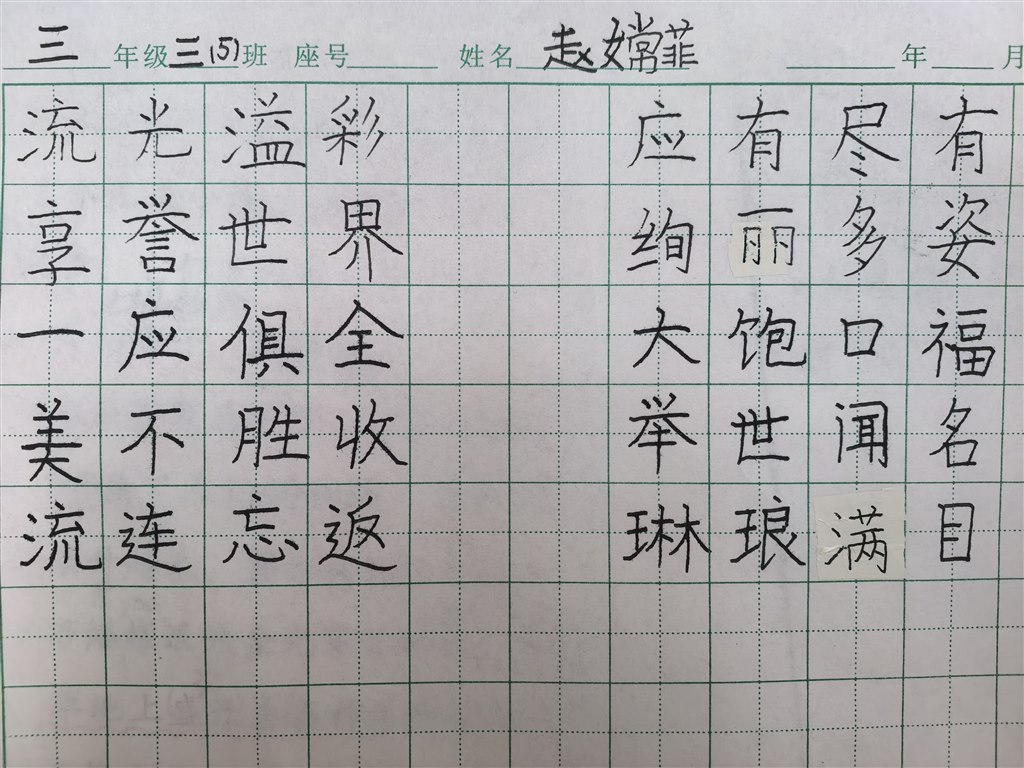 三年级三(5)班 座号 姓名赵嫦菲 年 月
流光溢彩 应有尽有
享誉世界 绚丽多姿
一应俱全 大饱口福
美不胜收 举世闻名
流连忘返 琳琅满目